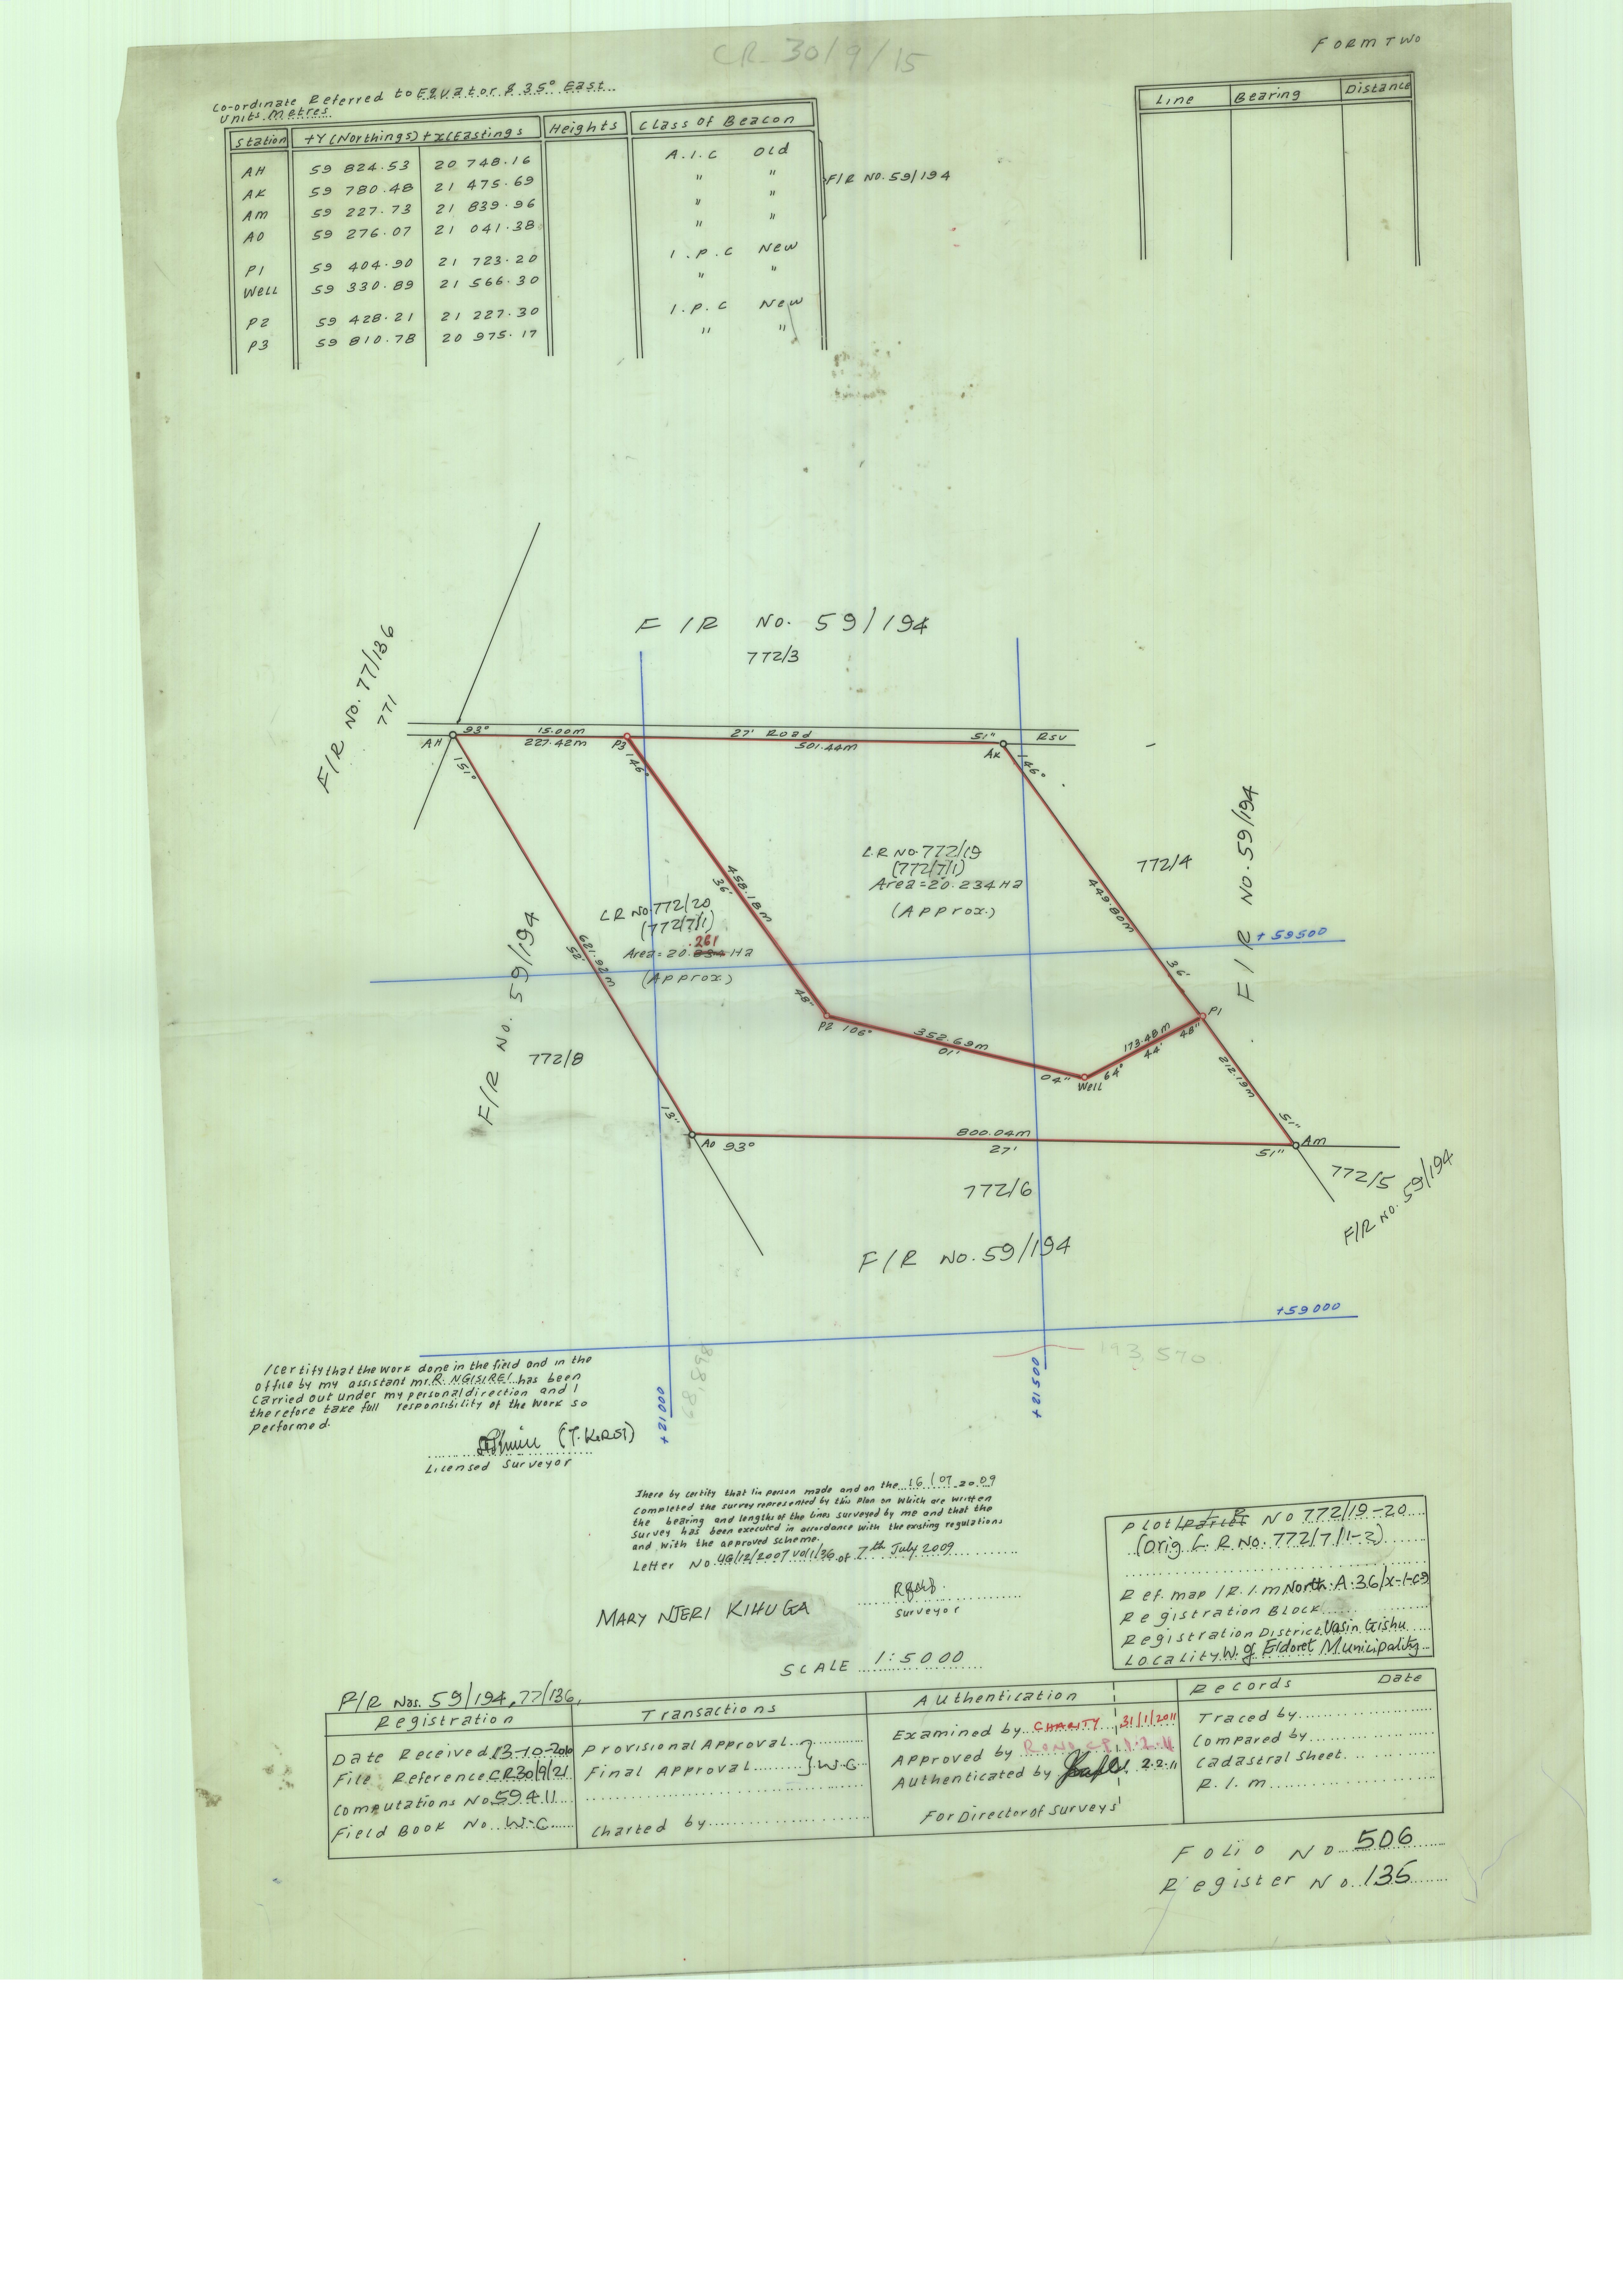 CR 30/9/15
FORM TWO
Co-ordinate Referred to Equator & 35° East
Units Metres
Station +Y (Northings) +x (Eastings Heights Class Of Beacon
AH 59 824.53 20 748.16 A.I.C Old
AK 59 780.48 21 475.69 " "
Am 59 227.73 21 839.96 " "
AO 59 276.07 21 041.38 " "
F/R NO. 59/194
P1 59 404.90 21 723.20 I.P.C New
Well 59 330.89 21 566.30 " "
P2 59 428.21 21 227.30 I.P.C New
P3 59 810.78 20 975.17 " "
Line Bearing Distance
F/R No. 59/194
772/3
F/R No. 77/136
771
AH 93° 15.00m 27' Road 51" RSV
227.42m P3 501.44m AK
151°
146°
146°
L.R NO. 772/19
(772/7/1)
Area = 20.234 Ha
(Approx.)
772/4
449.80m
F/R No. 59/194
458.18m
36'
L.R No. 772/20
(772/7/1)
.261
Area = 20.234 Ha
(Approx)
+ 59500
36'
F/R No. 59/194
621.92m
52'
48"
P2 106° 352.69m
01'
04" Well 64°
173.48m
44' 48"
P1
212.19m
51"
772/8
13"
AO 93° 800.04m
27' 51" Am
772/6
772/5
F/R No. 59/194
F/R No. 59/194
+59000
193,570
+ 21000
+ 21500
I certify that the work done in the field and in the
office by my assistant mr. R. NGISIREI has been
carried out under my personal direction and I
therefore take full responsibility of the work so
performed.
Licensed Surveyor
I here by certify that I in person made and on the 16/07 2009
completed the survey represented by this plan on which are written
the bearing and lengths of the lines surveyed by me and that the
survey has been executed in accordance with the existing regulations
and with the approved scheme.
Letter No of 7th July 2009
MARY NJERI KIHUGA
Surveyor
SCALE 1:5000
Plot/Parcel NO 772/19-20
(Orig. L.R No. 772/7/1-2)
Ref. map /R.I.m North A.36/X-1-C9
Registration Block
Registration District Uasin Gishu
Locality W. of Eldoret Municipality
F/R Nos. 59/194, 77/136,
Registration Transactions Authentication Records Date
Date Received 13-10-2010 Provisional Approval Examined by CHARITY 31/1/2011 Traced by
File Reference CR30/9/21 Final Approval W.C Approved by RONO C.P. 1.2.11 Compared by
Computations No 59411 Authenticated by 2.2.11 Cadastral Sheet
Field Book No. W.C. Charted by For Director of Surveys R.I.m
Folio No 506
Register No. 135